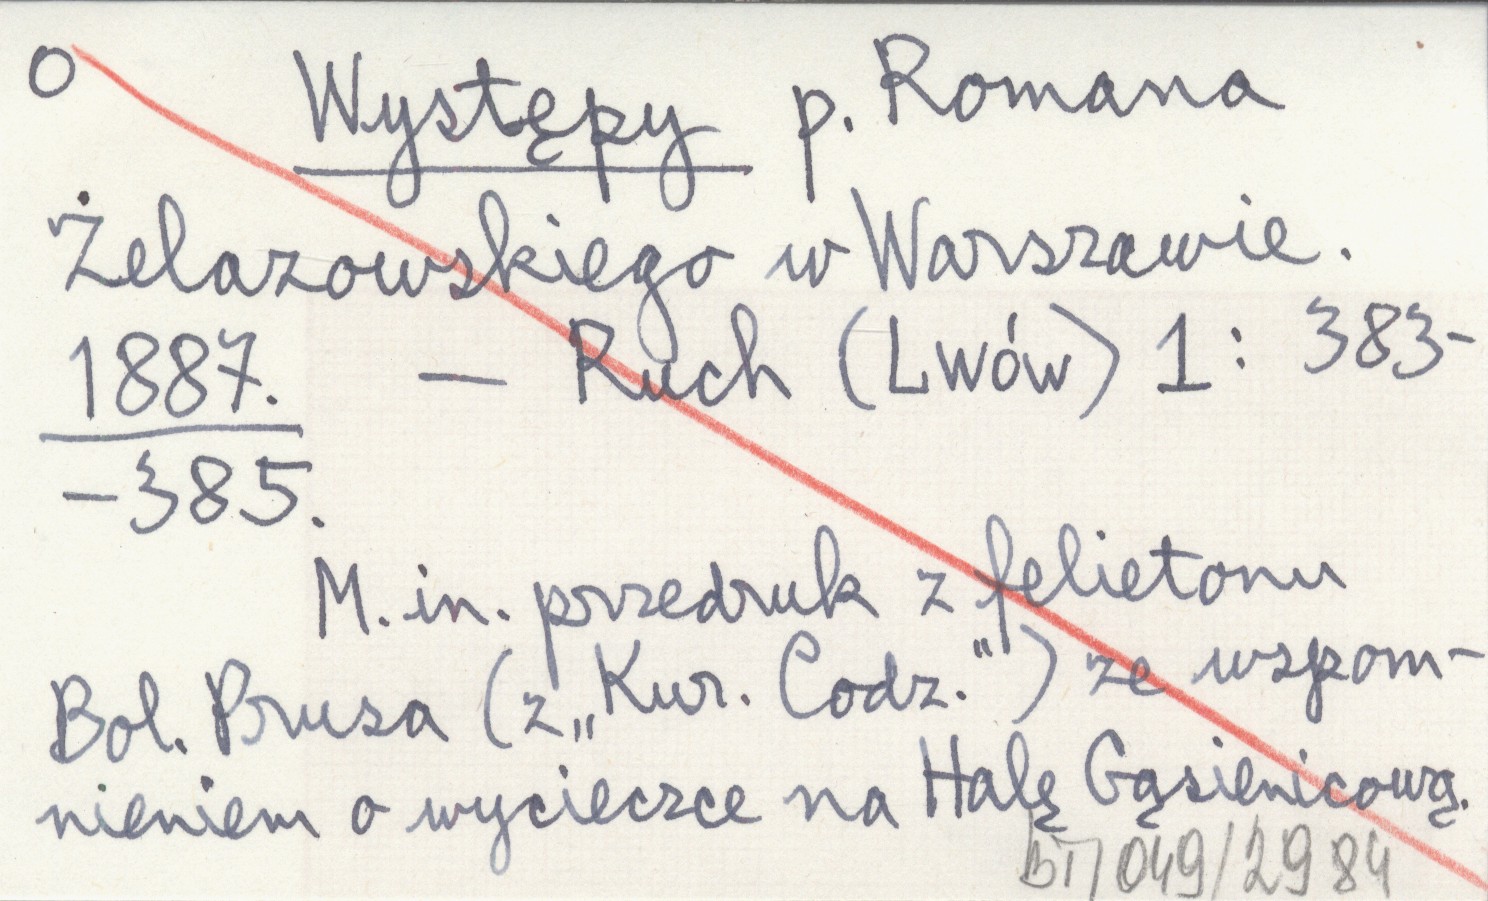 O Występy p. Romana
Żelazowskiego w Warszawie.
1887. — Ruch (Lwów) 1: 383-
-385.
M. in. przedruk z felietonu
Bol. Prusa (z „Kur. Codz.") ze wspom-
nieniem o wycieczce na Halę Gąsienicową.
BT/049/2984